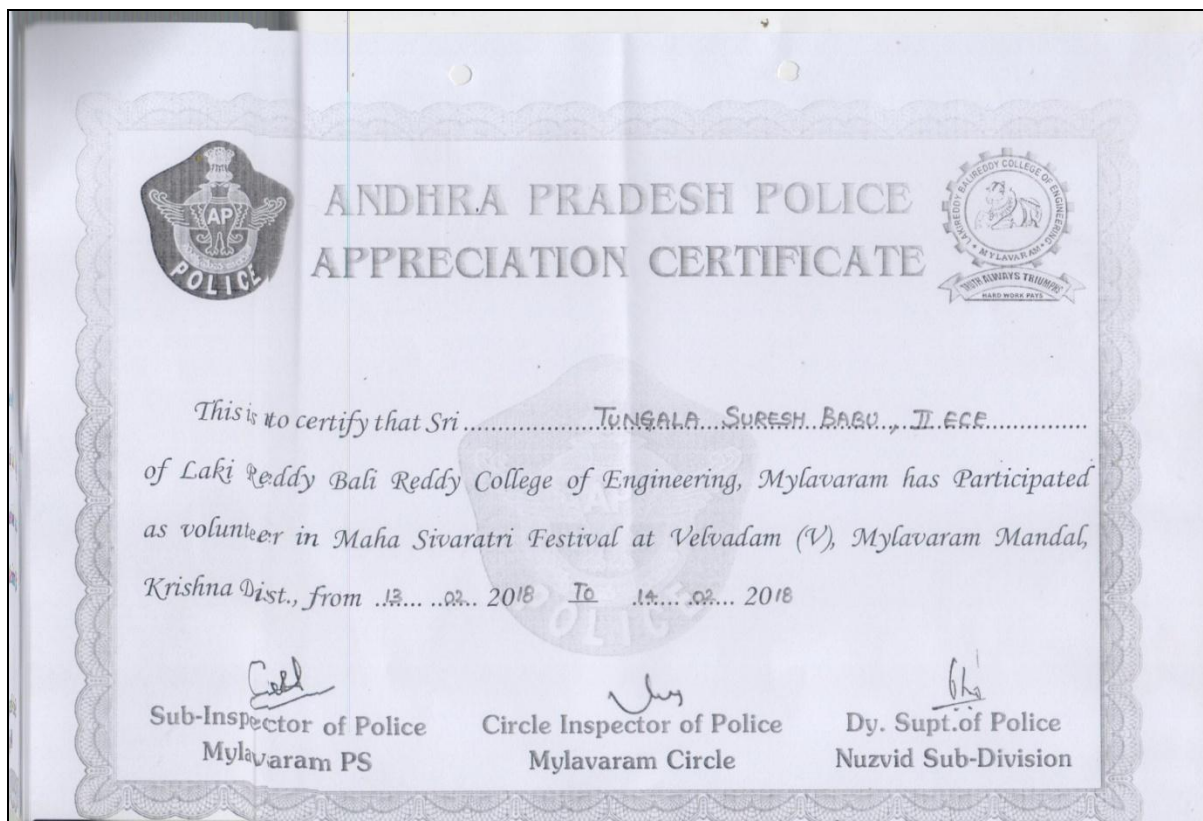 ANDHRA PRADESH POLICE
APPRECIATION CERTIFICATE
AP
POLICE
LAKIREDDY BALIREDDY COLLEGE OF ENGINEERING
MYLAVARAM
TRUTH ALWAYS TRIUMPHS
HARD WORK PAYS
This is to certify that Sri .................. TUNGALA SURESH BABU., II ECE ..............
of Laki Reddy Bali Reddy College of Engineering, Mylavaram has Participated
as volunteer in Maha Sivaratri Festival at Velvadam (V), Mylavaram Mandal,
Krishna Dist., from ..13... ..02.. 2018 To ..14.... .02... 2018
AP
POLICE
Sub-Inspector of Police
Mylavaram PS
Circle Inspector of Police
Mylavaram Circle
Dy. Supt.of Police
Nuzvid Sub-Division